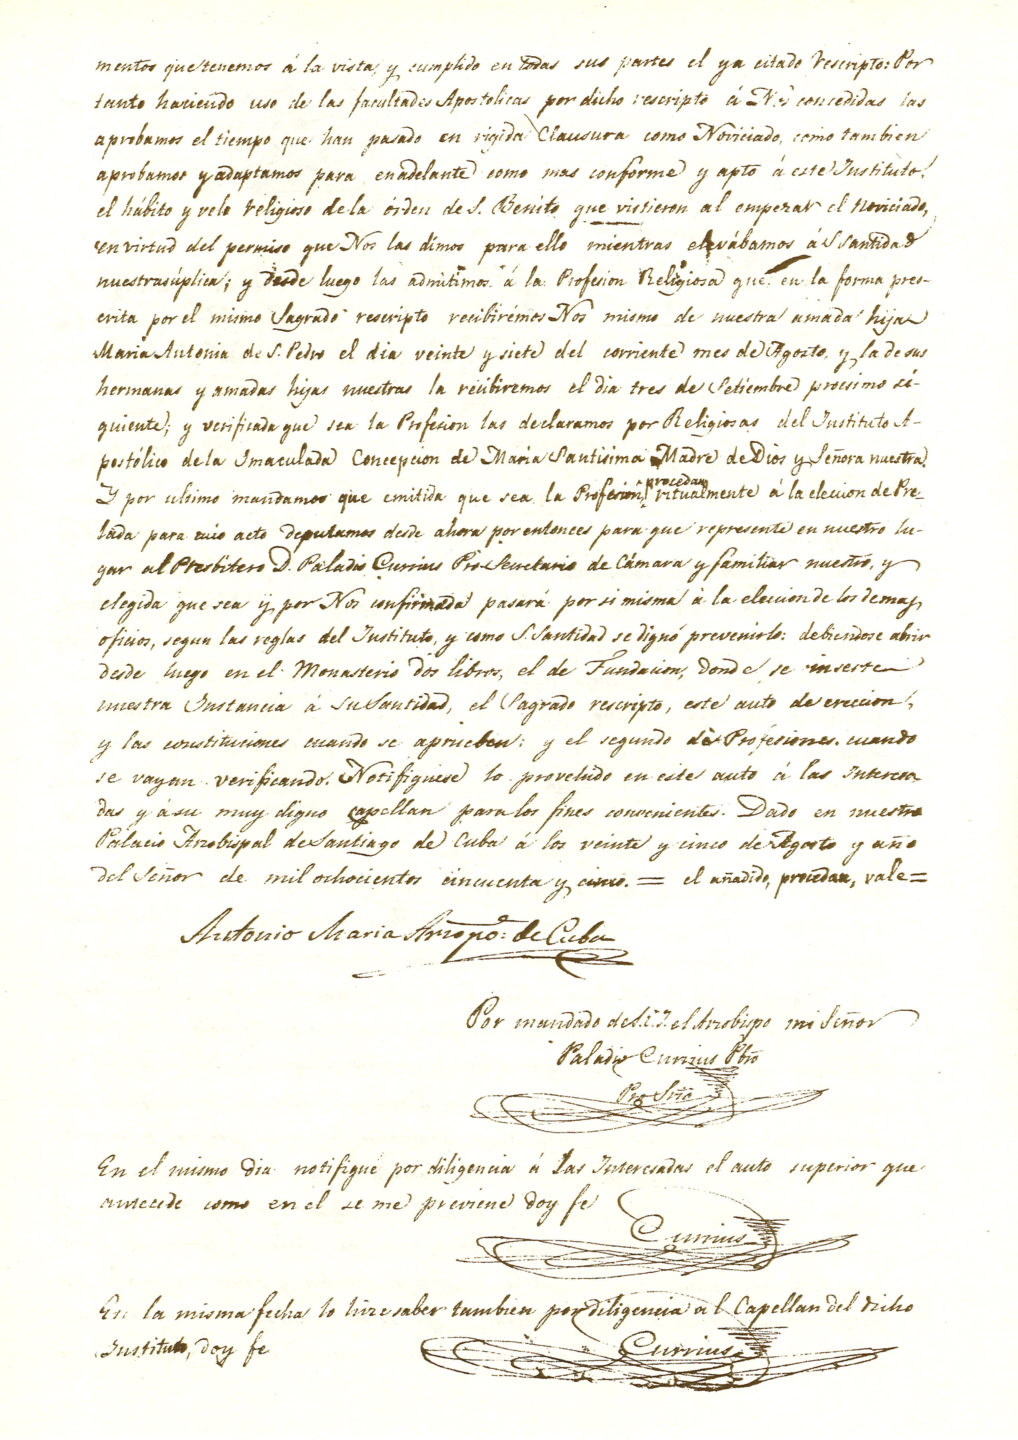 mentos que tenemos á la vista, y cumplido en todas sus partes el ya citado Rescripto: Por
tanto haciendo uso de las facultades Apostólicas por dicho rescripto á Nos concedidas las
aprobamos el tiempo que han pasado en rigida Clausura como Noviciado, como tambien
aprobamos y adaptamos para en adelante como mas conforme y apto á este Instituto,
el hábito y velo religioso de la órden de S. Benito que vistieron al empezar el Noviciado,
en virtud del permiso que Nos las dimos para ello mientras elevábamos á S Santidad
nuestra súplica; y desde luego las admitimos á la Profesion Religiosa que en la forma pres-
crita por el mismo Sagrado rescripto recibirémos Nos mismo de nuestra amada hija
Maria Antonia de S. Pedro el dia veinte y siete del corriente mes de Agosto, y la de sus
hermanas y amadas hijas nuestras la recibiremos el dia tres de Setiembre procsimo si-
guiente; y verificada que sea la Profesion las declaramos por Religiosas del Instituto A-
postólico de la Imaculada Concepcion de María Santísima Madre de Dios y Señora nuestra.
Y por ultimo mandamos que emitida que sea la Profesion, procedan ritualmente á la eleccion de Pre-
lada para cuio acto deputamos desde ahora por entonces para que represente en nuestro lu-
gar al Presbitero D. Paladio Currius Pro-Secretario de Cámara y familiar nuestro, y
elegida que sea y por Nos confirmada pasará por si misma á la eleccion de los demas
oficios, segun las reglas del Instituto, y como S. Santidad se dignó prevenirlo: debiendose abrir
desde luego en el Monasterio dos libros, el de Fundacion, donde se inserte
nuestra Instancia á Su Santidad, el Sagrado rescripto, este auto de ereccion,
y las constituciones cuando se aprueben: y el segundo de Profesiones cuando
se vayan verificando. Notifíquese lo provehido en este auto á las Interesa-
das y á su muy digno capellan para los fines convenientes. Dado en nuestro
Palacio Arzobispal de Santiago de Cuba á los veinte y cinco de Agosto y año
del Señor de mil ochocientos cincuenta y cinco. = el añadido, procedan, vale =
Antonio Maria Arzopo. de Cuba
Por mandado de S. E. I. el Arzobispo mi Señor
Paladio Currius Pbro
Pro Srio
En el mismo dia notifiqué por diligencia á las Interesadas el auto superior que
antecede como en el se me previene doy fe
Currius
En la misma fecha lo hize saber tambien por diligencia al Capellan del dicho
Instituto, doy fe
Currius